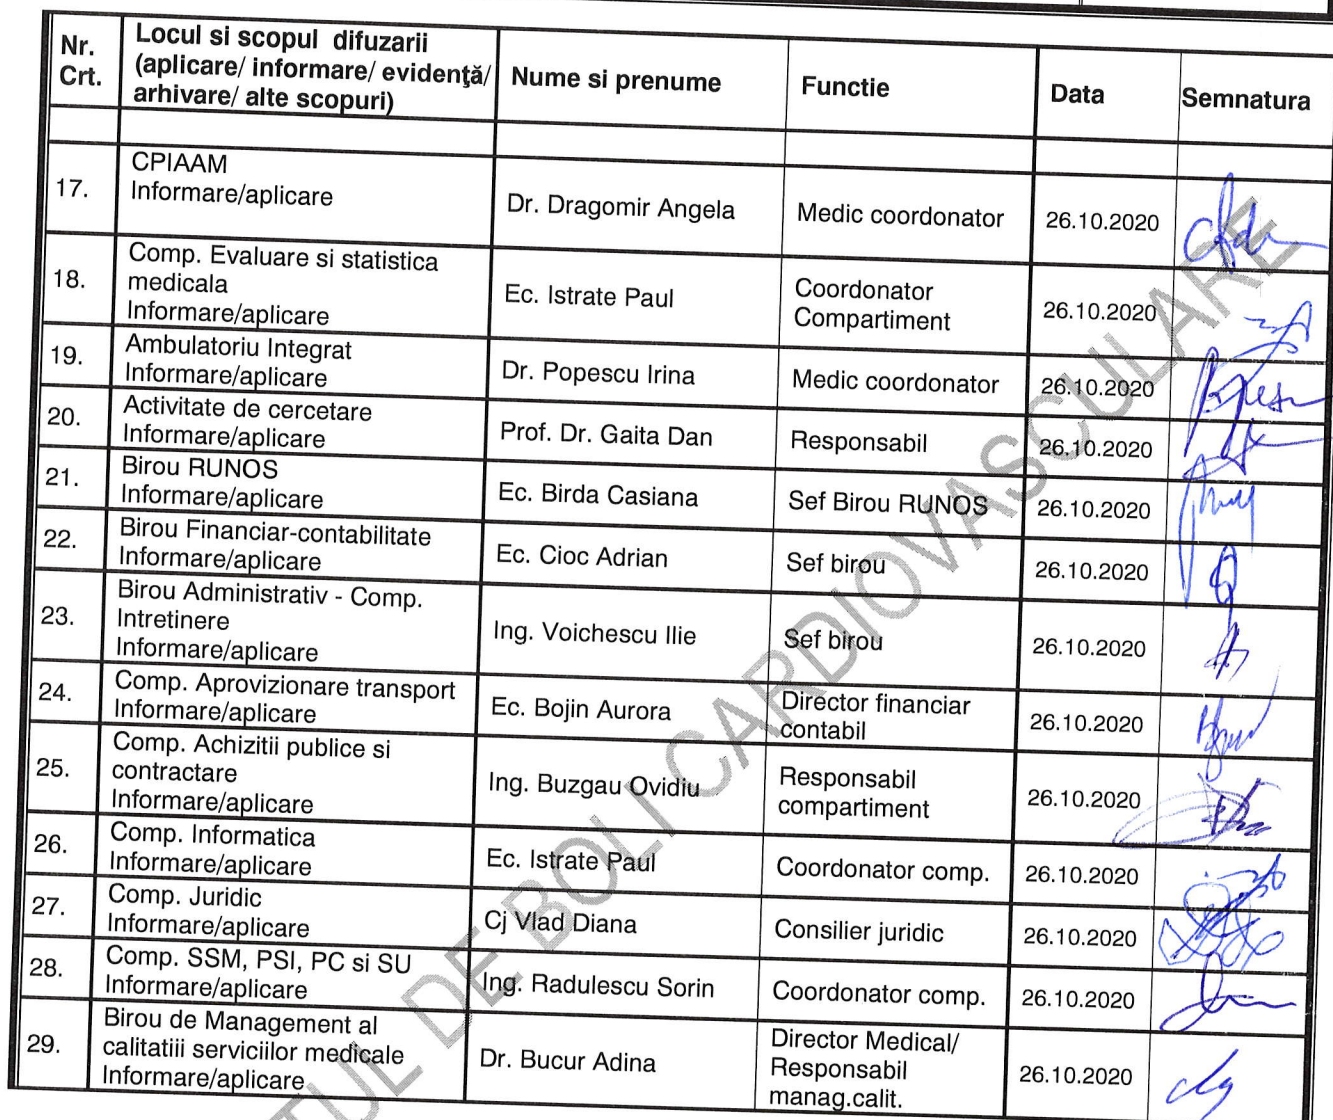 Nr.
Crt.
Locul si scopul difuzarii
(aplicare/ informare/ evidenţă/
arhivare/ alte scopuri)
Nume si prenume
Functie
Data
Semnatura
17.
CPIAAM
Informare/aplicare
Dr. Dragomir Angela
Medic coordonator
26.10.2020
18.
Comp. Evaluare si statistica
medicala
Informare/aplicare
Ec. Istrate Paul
Coordonator
Compartiment
26.10.2020
19.
Ambulatoriu Integrat
Informare/aplicare
Dr. Popescu Irina
Medic coordonator
26.10.2020
20.
Activitate de cercetare
Informare/aplicare
Prof. Dr. Gaita Dan
Responsabil
26.10.2020
21.
Birou RUNOS
Informare/aplicare
Ec. Birda Casiana
Sef Birou RUNOS
26.10.2020
22.
Birou Financiar-contabilitate
Informare/aplicare
Ec. Cioc Adrian
Sef birou
26.10.2020
23.
Birou Administrativ - Comp.
Intretinere
Informare/aplicare
Ing. Voichescu Ilie
Sef birou
26.10.2020
24.
Comp. Aprovizionare transport
Informare/aplicare
Ec. Bojin Aurora
Director financiar
contabil
26.10.2020
25.
Comp. Achizitii publice si
contractare
Informare/aplicare
Ing. Buzgau Ovidiu
Responsabil
compartiment
26.10.2020
26.
Comp. Informatica
Informare/aplicare
Ec. Istrate Paul
Coordonator comp.
26.10.2020
27.
Comp. Juridic
Informare/aplicare
Cj Vlad Diana
Consilier juridic
26.10.2020
28.
Comp. SSM, PSI, PC si SU
Informare/aplicare
Ing. Radulescu Sorin
Coordonator comp.
26.10.2020
29.
Birou de Management al
calitatiii serviciilor medicale
Informare/aplicare
Dr. Bucur Adina
Director Medical/
Responsabil
manag.calit.
26.10.2020
TUL DE BOLI CARDIOVASCULARE